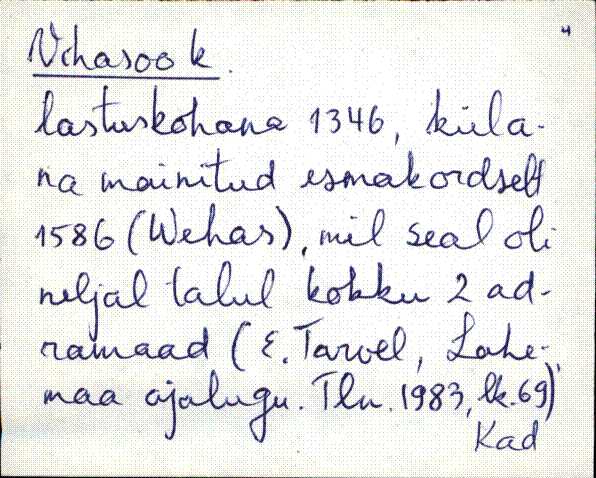 4
Vihasoo k.
lastuskohana 1346, küla-
na mainitud esmakordselt
1586 (Wehas), mil seal oli
neljal talul kokku 2 ad-
ramaad (E. Tarvel, Lahe-
maa ajalugu. Tln. 1983, lk. 69).
Kad